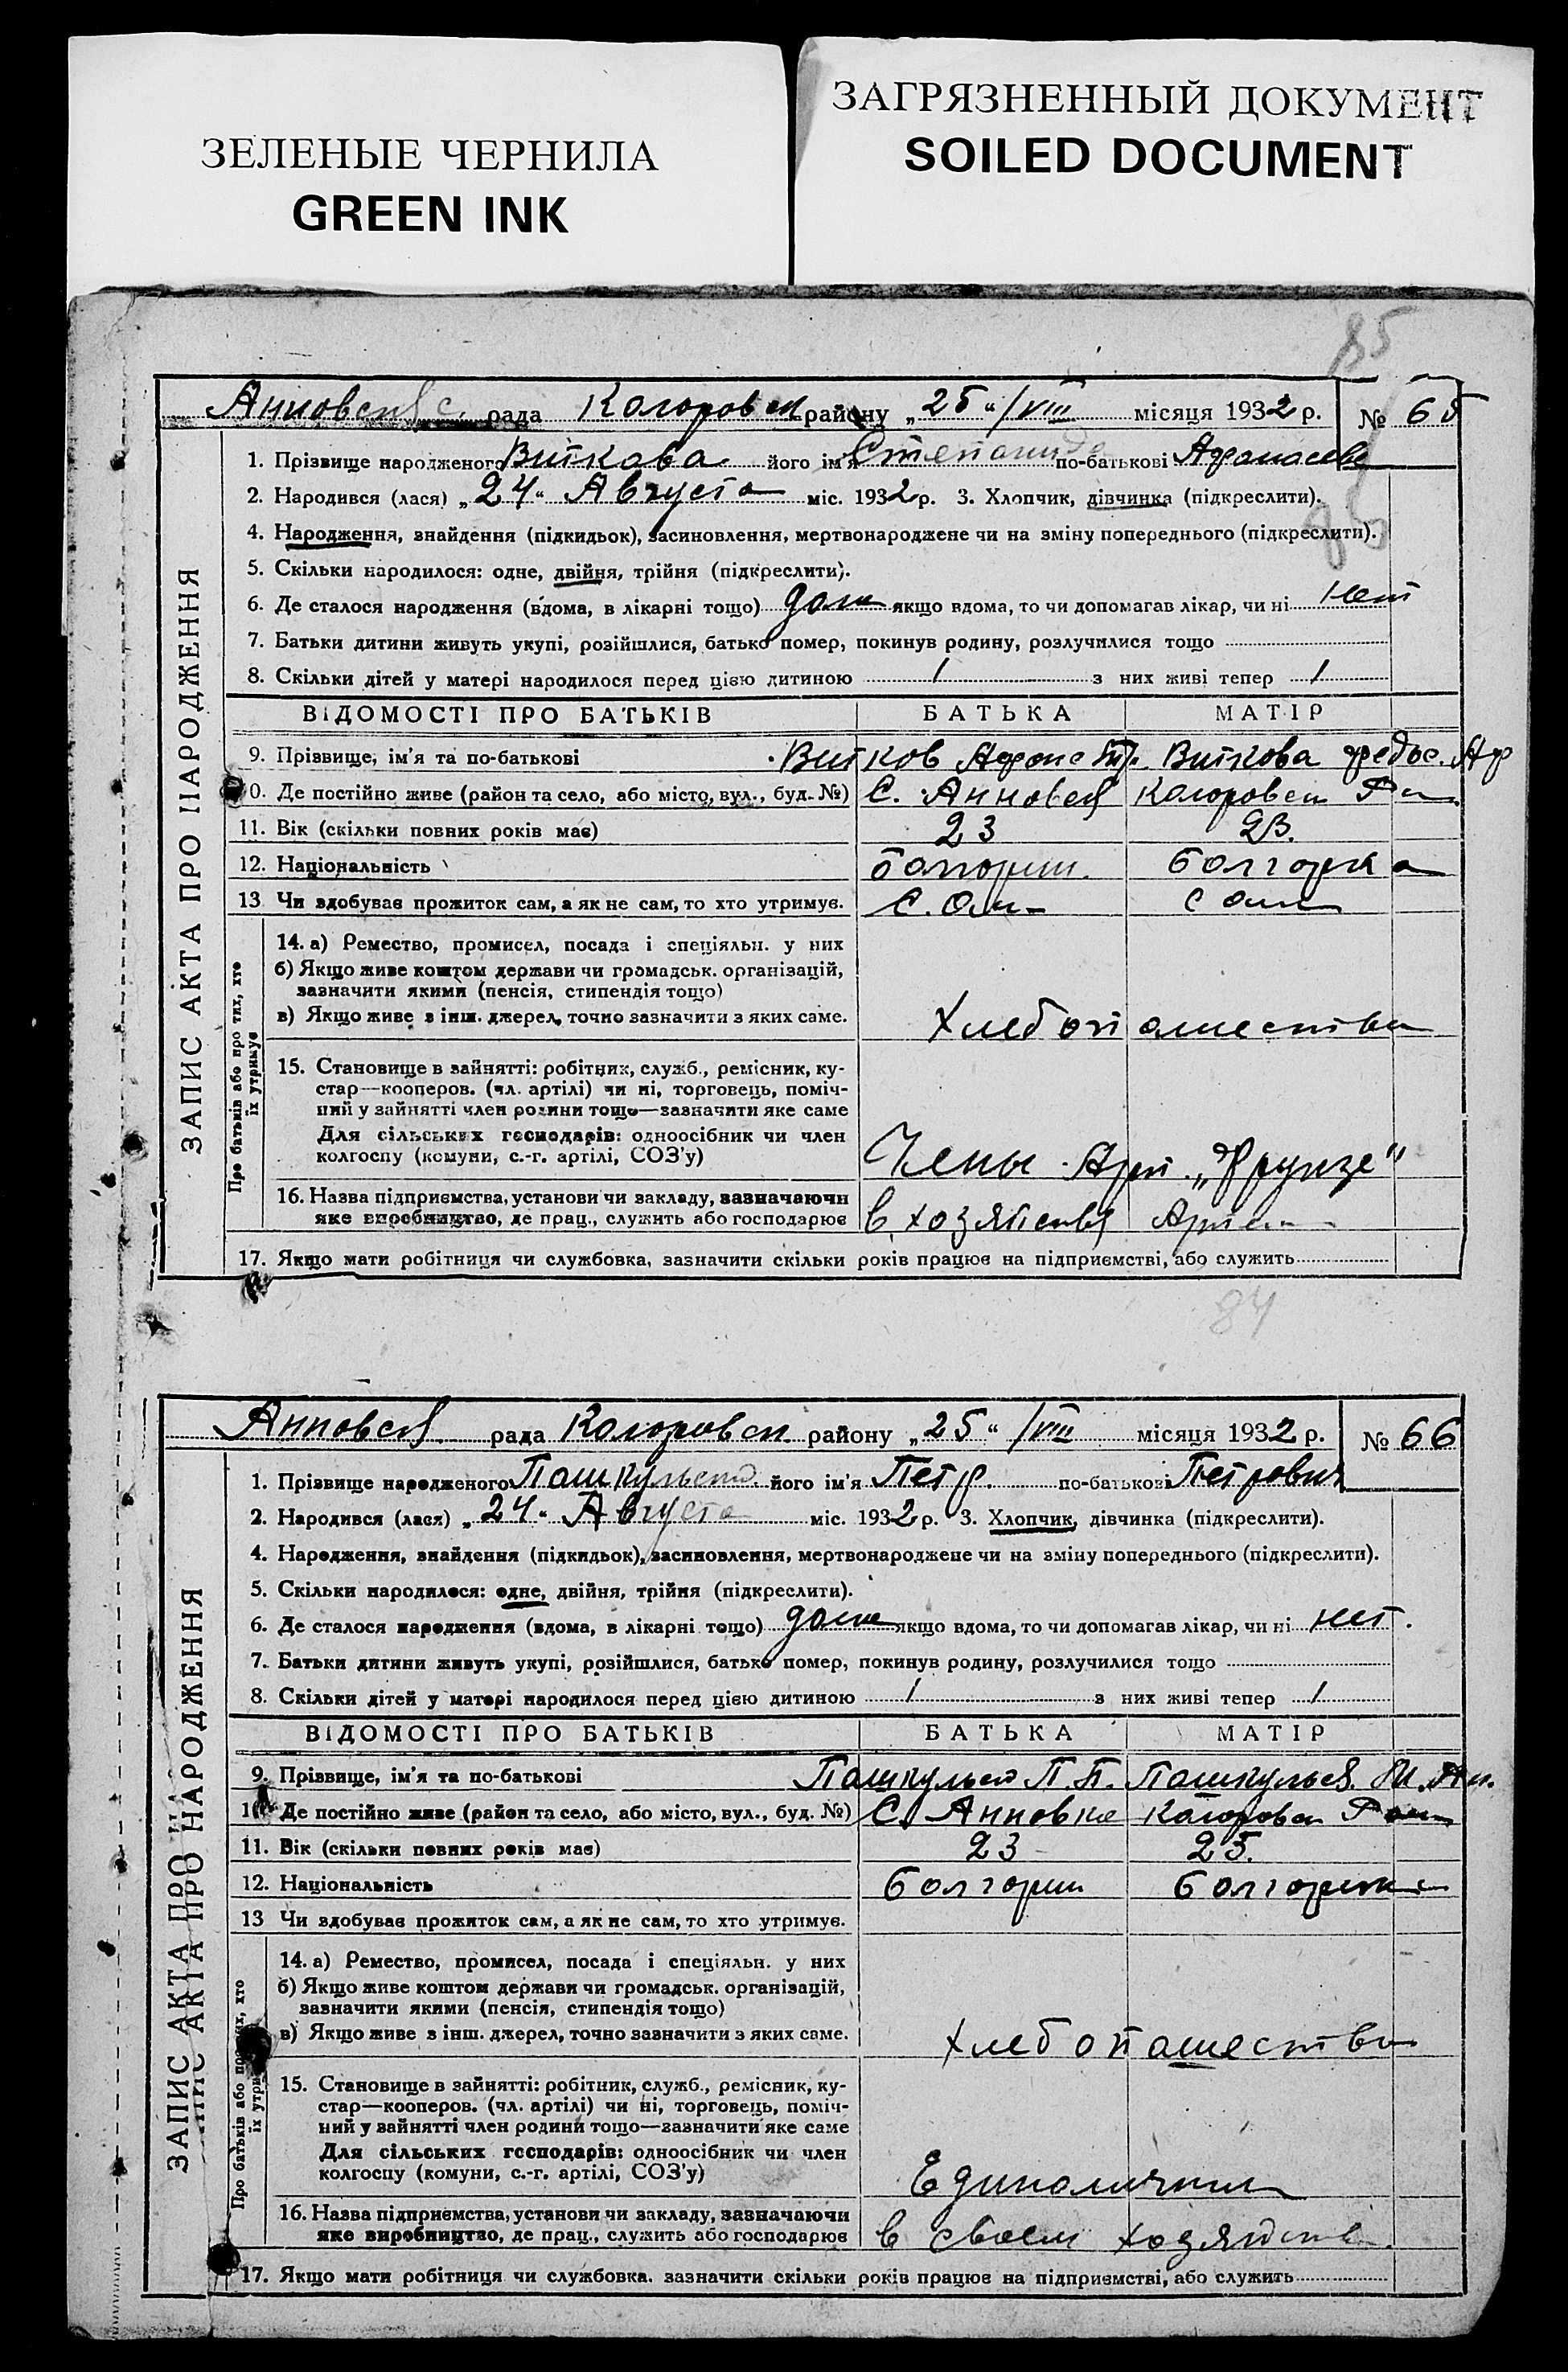 ЗЕЛЕНЫЕ ЧЕРНИЛА
GREEN INK
ЗАГРЯЗНЕННЫЙ ДОКУМЕНТ
SOILED DOCUMENT
85
рада района „25“ /VIII місяця 1932 р. № 65
ЗАПИС АКТА ПРО НАРОДЖЕННЯ
1. Прізвище народженого Виткова його ім'я Степанида по-батькові
2. Народився (лася) „24“ Августа міс. 1932 р. 3. Хлопчик, дівчинка (підкреслити).
4. Народження, знайдення (підкидьок), засиновлення, мертвонароджене чи на зміну попереднього (підкреслити).
5. Скільки народилося: одне, двійня, трійня (підкреслити).
6. Де сталося народження (вдома, в лікарні тощо) дома якщо вдома, то чи допомагав лікар, чи ні нет
7. Батьки дитини живуть укупі, розійшлися, батько помер, покинув родину, розлучилися тощо
8. Скільки дітей у матері народилося перед цією дитиною 1 з них живі тепер 1
ВІДОМОСТІ ПРО БАТЬКІВ БАТЬКА МАТІР
9. Прізвище, ім'я та по-батькові Витков Виткова
0. Де постійно живе (район та село, або місто, вул., буд. №) С.
11. Вік (скільки повних років має) 23 23.
12. Національність болгорин. болгорка
13 Чи здобував прожиток сам, а як не сам, то хто утримує. Сам сам
Про батьків або про тих, хто їх утримує
14. а) Ремество, промисел, посада і спеціяльн. у них
б) Якщо живе коштом держави чи громадськ. організацій,
зазначити якими (пенсія, стипендія тощо)
в) Якщо живе з інш. джерел, точно зазначити з яких саме. хлебопашество
15. Становище в зайнятті: робітник, служб., ремісник, ку-
стар—кооперов. (чл. артілі) чи ні, торговець, поміч-
ний у зайнятті член родини тощо—зазначити яке саме
Для сільських господарів: одноосібник чи член
колгоспу (комуни, с.-г. артілі, СОЗ'у) Члены Арт. „Фрунзе“
16. Назва підприємства, установи чи закладу, зазначаючи
яке виробництво, де прац., служить або господарює в
17. Якщо мати робітниця чи службовка, зазначити скільки років працює на підприємстві, або служить
84
рада району „25“ /VIII місяця 1932 р. № 66
ЗАПИС АКТА ПРО НАРОДЖЕННЯ
1. Прізвище народженого його ім'я Петр. по-батькові Петрович
2. Народився (лася) „24“ Августа міс. 1932 р. 3. Хлопчик, дівчинка (підкреслити).
4. Народження, знайдення (підкидьок), засиновлення, мертвонароджене чи на зміну попереднього (підкреслити).
5. Скільки народилося: одне, двійня, трійня (підкреслити).
6. Де сталося народження (вдома, в лікарні тощо) дома якщо вдома, то чи допомагав лікар, чи ні нет.
7. Батьки дитини живуть укупі, розійшлися, батько помер, покинув родину, розлучилися тощо
8. Скільки дітей у матері народилося перед цією дитиною 1 з них живі тепер 1
ВІДОМОСТІ ПРО БАТЬКІВ БАТЬКА МАТІР
9. Прізвище, ім'я та по-батькові П.П.
1 Де постійно живе (район та село, або місто, вул., буд. №) С. Анновка
11. Вік (скільки повних років має) 23 25.
12. Національність болгорин болгорка
13 Чи здобував прожиток сам, а як не сам, то хто утримує.
14. а) Ремество, промисел, посада і спеціяльн. у них
б) Якщо живе коштом держави чи громадськ. організацій,
зазначити якими (пенсія, стипендія тощо)
в) Якщо живе з інш. джерел, точно зазначити з яких саме. хлебопашество
15. Становище в зайнятті: робітник, служб., ремісник, ку-
стар—кооперов. (чл. артілі) чи ні, торговець, поміч-
ний у зайнятті член родини тощо—зазначити яке саме
Для сільських господарів: одноосібник чи член
колгоспу (комуни, с.-г. артілі, СОЗ'у) Единоличник
16. Назва підприємства, установи чи закладу, зазначаючи
яке виробництво, де прац., служить або господарює в своем
17. Якщо мати робітниця чи службовка. зазначити скільки років працює на підприємстві, або служить